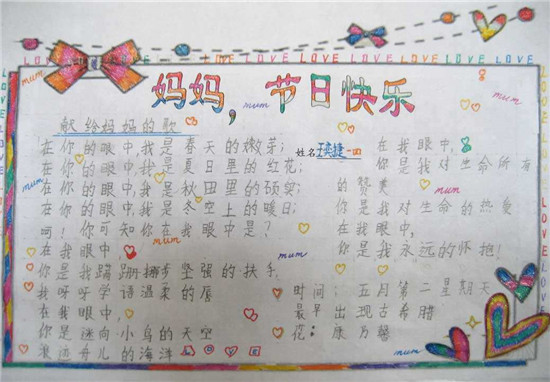 LOVE LOVE LOVE LOVE LOVE LOVE LOVE
妈妈,节日快乐
mum
mum
献给妈妈的歌
姓名 王奕捷
在你的眼中,我是春天的嫩芽;
在你的眼中,我是夏日里的红花;
在你的眼中,我是秋田里的硕实;
在你的眼中,我是冬空上的暖日;
呵!你可知你在我眼中是?
在我眼中,
你是我蹒跚挪步坚强的扶手
我呀呀学语温柔的唇
在我眼中,
你是迷向小鸟的天空
浪迹舟儿的海洋
在我眼中,
你是我对生命所有
的赞美
你是我对生命的热爱
在我眼中,
你是我永远的怀抱!
时间:五月第二星期天
最早出现古希腊
花:康乃馨
mum
mum
mum
mum
mum
mum